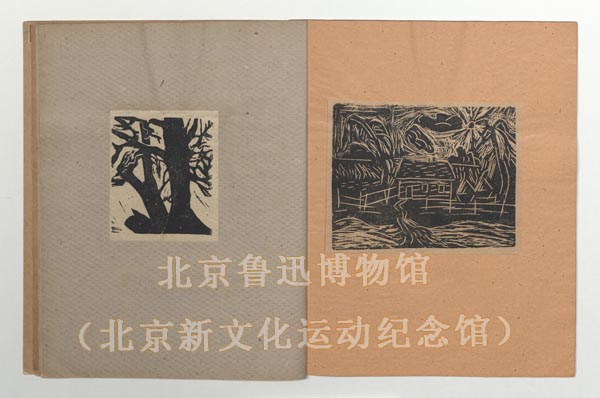 北京鲁迅博物馆
（北京新文化运动纪念馆）